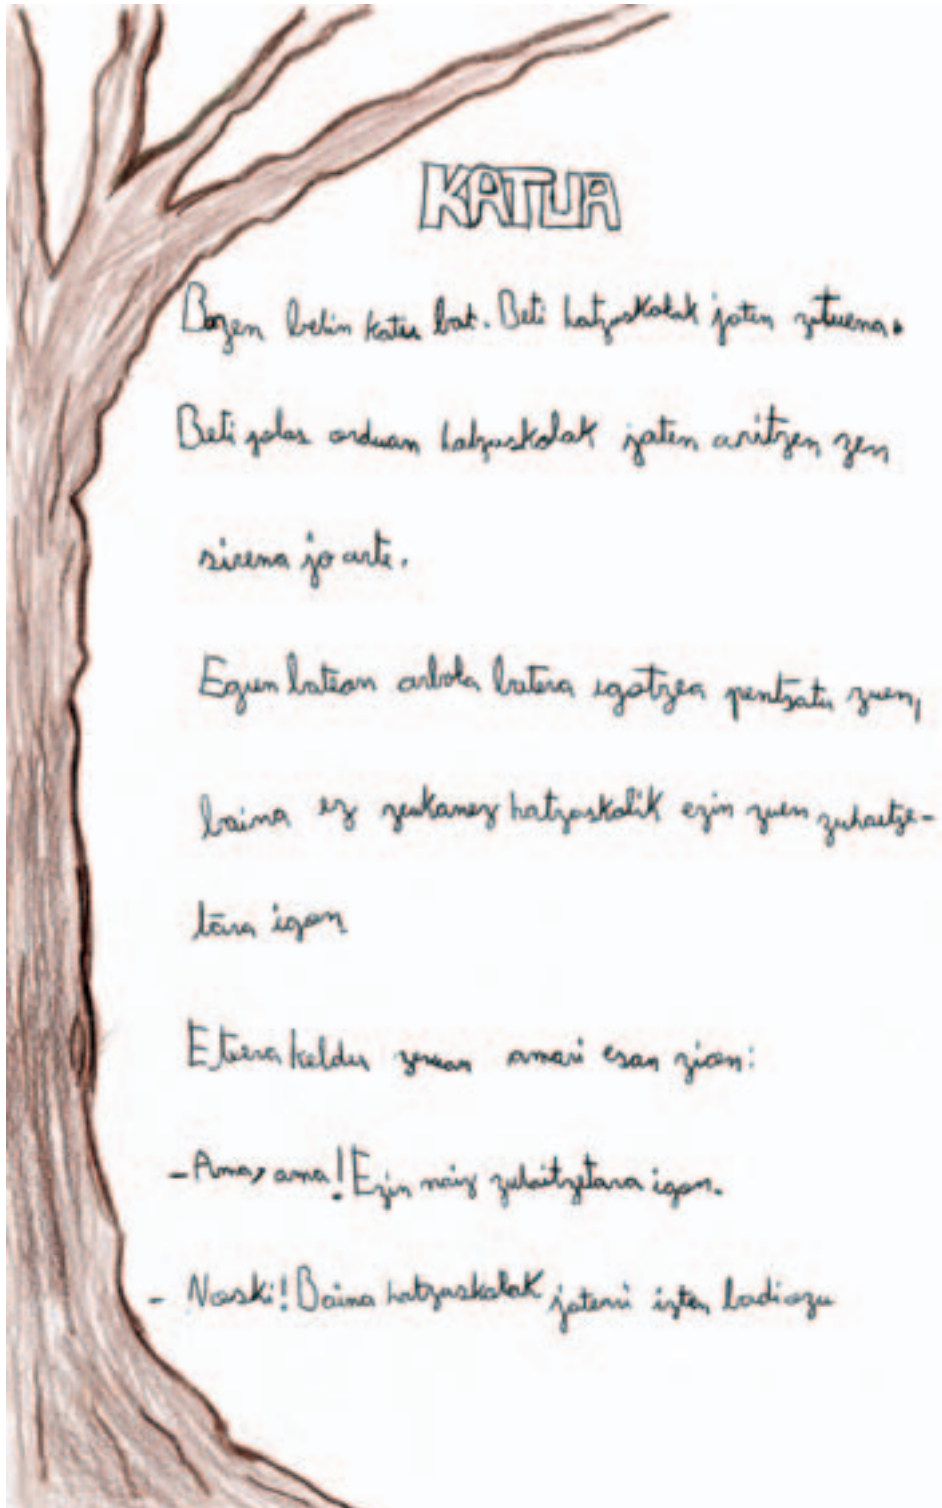 KATUA
Bazen behin katu bat. Beti hatzaskalak jaten zituena.
Beti jolas orduan hatzaskalak jaten aritzen zen
sirena jo arte.
Egun batean arbola batera igotzea pentsatu zuen,
baina ez zeukanez hatzaskalik ezin zuen zuhaitze-
tara igon
Etxera heldu zenean amari esan zion:
- Ama, ama! Ezin naiz zuhaitzetara igon.
- Noski! Baina hatzaskalak jaterri izten badiozu